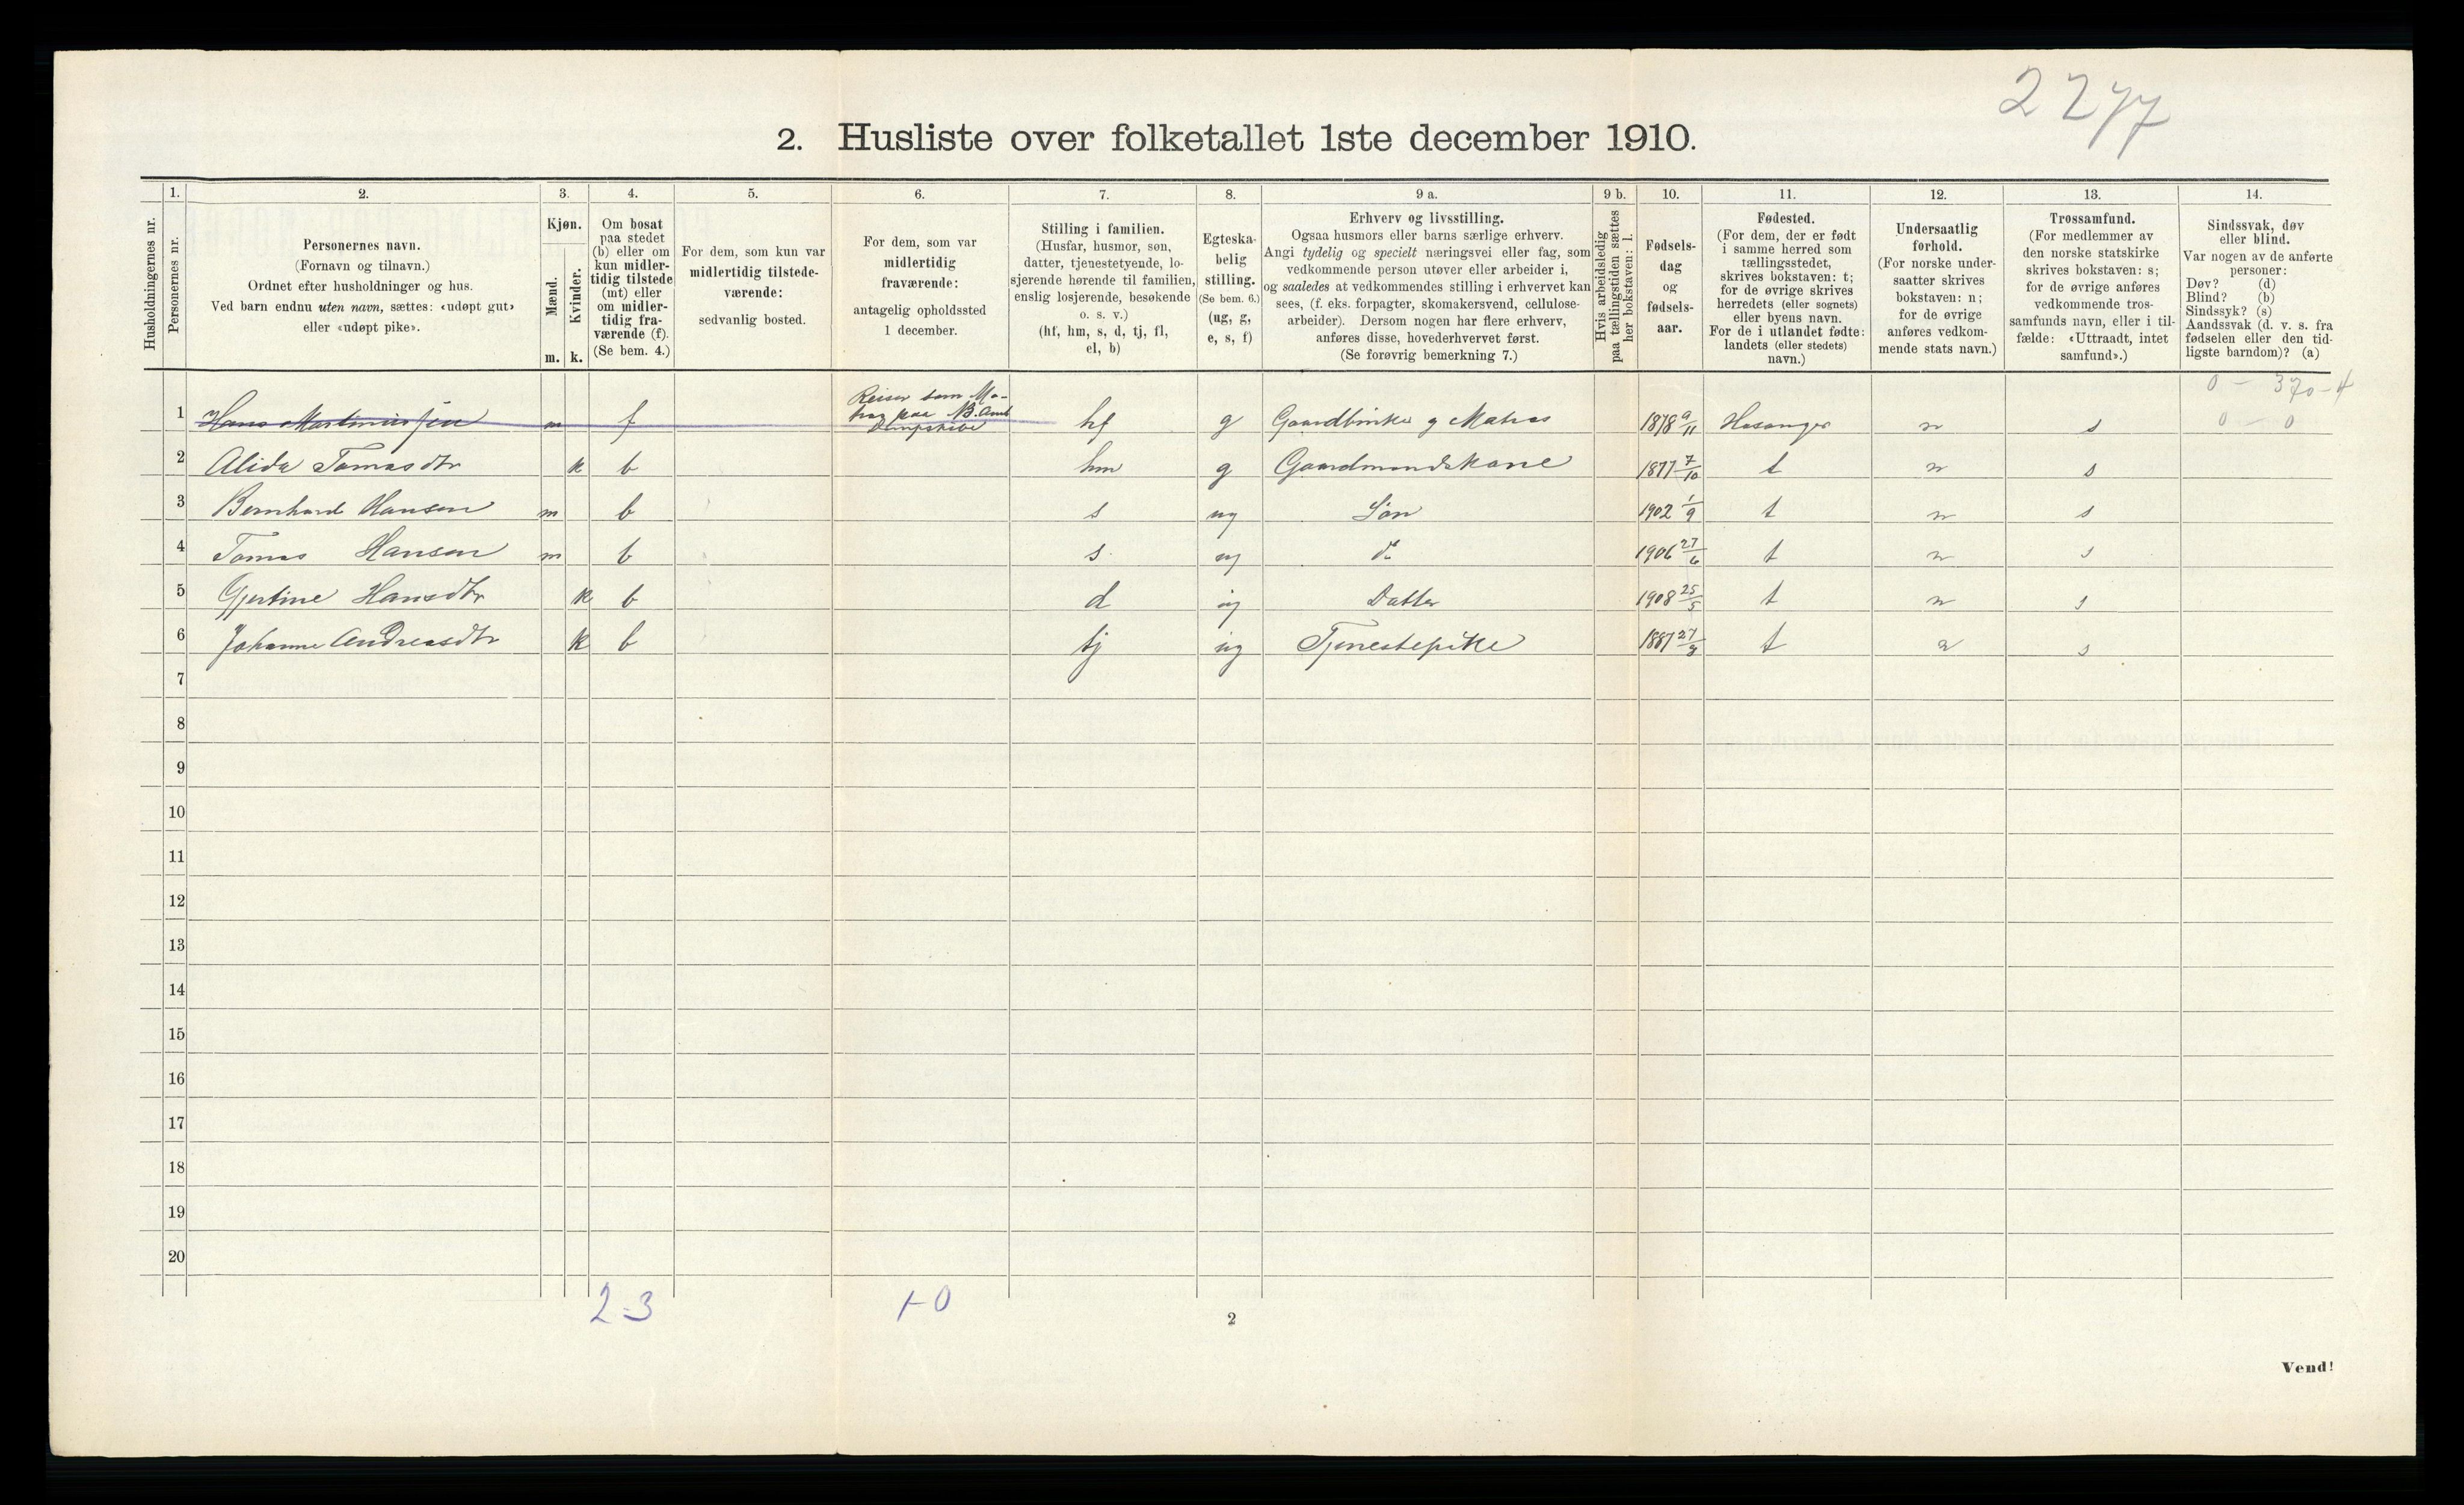 2277
2. Husliste over folketallet 1ste december 1910.
Husholdningernes nr.
1.
Personernes nr.
2.
Personernes navn.
(Fornavn og tilnavn.)
Ordnet efter husholdninger og hus.
Ved barn endnu uten navn, sættes: «udøpt gut»
eller «udøpt pike».
3.
Kjøn.
Mænd.
Kvinder.
m.
k.
4.
Om bosat
paa stedet
(b) eller om
kun midler-
tidig tilstede
(mt) eller
om midler-
tidig fra-
værende (f).
(Se bem. 4.)
5.
For dem, som kun var
midlertidig tilstede-
værende:
sedvanlig bosted.
6.
For dem, som var
midlertidig
fraværende:
antagelig opholdssted
1 december.
7.
Stilling i familien.
(Husfar, husmor, søn,
datter, tjenestetyende, lo-
sjerende hørende til familien,
enslig losjerende, besøkende
o. s. v.)
(hf, hm, s, d, tj, fl,
el, b)
8.
Egteska-
belig
stilling.
(Se bem. 6.)
(ug, g,
e, s, f)
9 a.
Erhverv og livsstilling.
Ogsaa husmors eller barns særlige erhverv.
Angi tydelig og specielt næringsvei eller fag, som
vedkommende person utøver eller arbeider i,
og saaledes at vedkommendes stilling i erhvervet kan
sees, (f. eks. forpagter, skomakersvend, cellulose-
arbeider). Dersom nogen har flere erhverv,
anføres disse, hovederhvervet først.
(Se forøvrig bemerkning 7.)
9 b.
Hvis arbeidsledig
paa tællingstiden sættes
her bokstaven: l.
10.
Fødsels-
dag
og
fødsels-
aar.
11.
Fødested.
(For dem, der er født
i samme herred som
tællingsstedet,
skrives bokstaven: t;
for de øvrige skrives
herredets (eller sognets)
eller byens navn.
For de i utlandet fødte:
landets (eller stedets)
navn.)
12.
Undersaatlig
forhold.
(For norske under-
saatter skrives
bokstaven: n;
for de øvrige
anføres vedkom-
mende stats navn.)
13.
Trossamfund.
(For medlemmer av
den norske statskirke
skrives bokstaven: s;
for de øvrige anføres
vedkommende tros-
samfunds navn, eller i til-
fælde: «Uttraadt, intet
samfund».)
14.
Sindssvak, døv
eller blind.
Var nogen av de anførte
personer:
Døv? (d)
Blind? (b)
Sindssyk? (s)
Aandssvak (d. v. s. fra
fødselen eller den tid-
ligste barndom)? (a)
0 - 370-4
0 - 0
1 Hans Martinussen m f Reiser som Ma-
tros paa
hf g Gaardbruker g Matros 1878 9/11 Hosanger n s
2 Alida Tomasdtr k b hm g Gaardmandskone 1877 7/10 t n s
3 Bernhard Hansen m b s ug Søn 1902 1/9 t n s
4 Tomas Hansen m b s ug do 1906 27/6 t n s
5 Gjertine Hansdtr k b d ug Datter 1908 25/5 t n s
6 Johanne Andreasdtr k b tj ug Tjenestepike 1887 t n s
7
8
9
10
11
12
13
14
15
16
17
18
19
20
2-3
1-0
2
Vend!